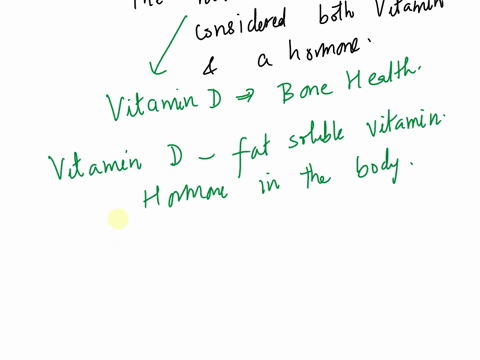 The
considered both Vitamin
& a hormone.
Vitamin D ⇒ Bone Health.
Vitamin D – fat soluble vitamin.
Hormone in the body.